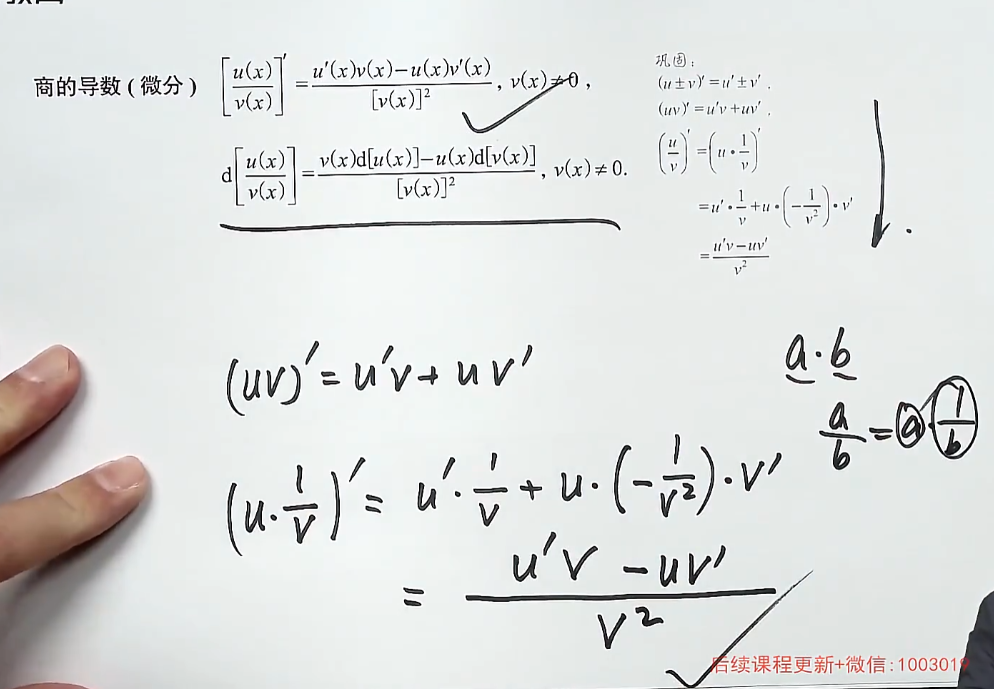 商的导数(微分) [u(x)/v(x)]′ = (u′(x)v(x)−u(x)v′(x))/[v(x)]², v(x)≠0,
d[u(x)/v(x)] = (v(x)d[u(x)]−u(x)d[v(x)])/[v(x)]², v(x)≠0.
巩固:
(u±v)′=u′±v′.
(uv)′=u′v+uv′.
(u/v)′=(u·1/v)′
=u′·1/v+u·(−1/v²)·v′
=(u′v−uv′)/v²
(uv)′=u′v+uv′
(u·1/v)′=u′·1/v+u·(−1/v²)·v′
=(u′v−uv′)/v²
a·b
a/b=a·1/b
后续课程更新+微信:1003019